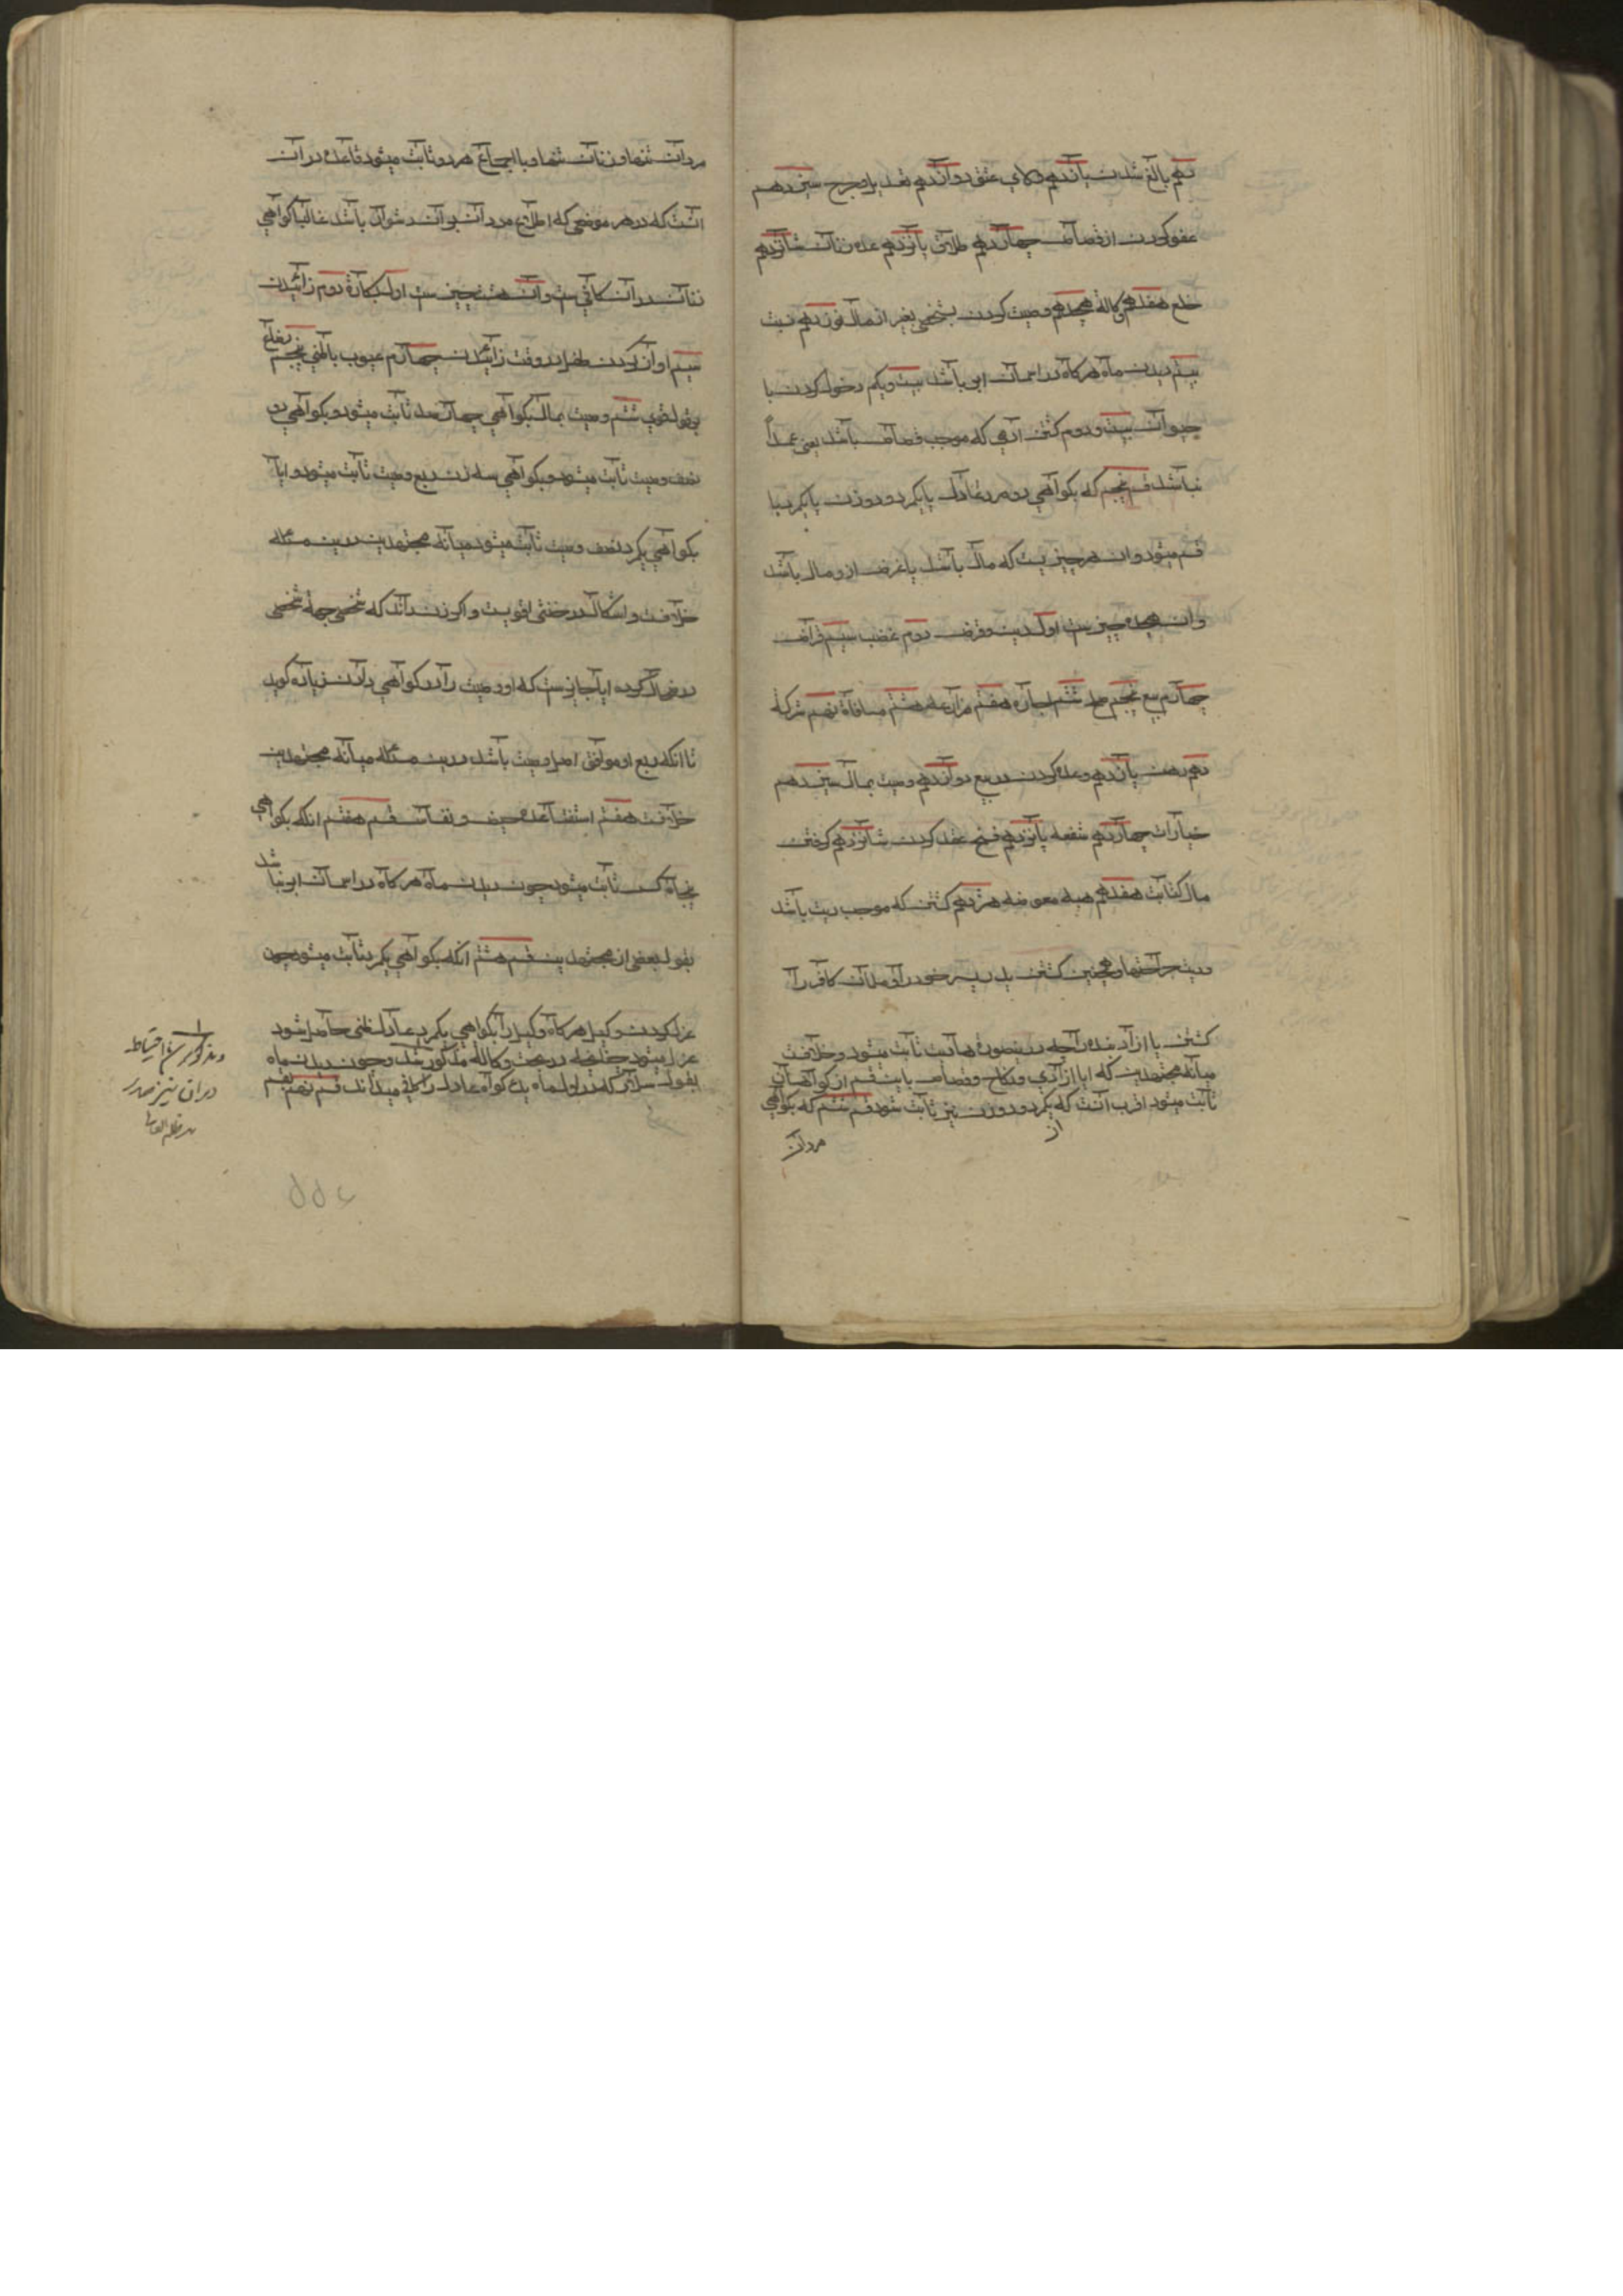 دهم بالغ شدن یازدهم ولای عتق دوازدهم تعدیل و جرح سیزدهم
عفو کردن از قصاص چهاردهم طلاق پانزدهم عده زنان شانزدهم
خلع هفدهم وکالة هجدهم وصیت کردن بشخصی بغیر از مال نوزدهم نسب
بیستم دیدن ماه هرکاه در اسمان ابر باشد بیست و یکم دخول کردن با
حیوان بیست و دوم کشتن ادمی که موجب قصاص باشد یعنی عمداً
نباشد قسم پنجم که بکواهی دو مرد عادل یا یکمرد و دو زن یا یکمرد با
قسم میشود و ان هر چیزیست که مال باشد یا غرض ازو مال باشد
و ان هجده چیزست اول دین و قرض دوم غصب سیم قراض
چهارم بیع پنجم صلح ششم اجاره هفتم مزارعه هشتم مساقاة نهم شرکة
دهم رهن یازدهم وعده کردن در بیع دوازدهم وصیت بمال سیزدهم
خیارات چهاردهم شفعه پانزدهم فسخ عقد کردن شانزدهم کرفتن
مال کتابت هفدهم هبه معوضه هژدهم کشتن که موجب دیت باشد
و دیت جراحتها و همچنین کشتن پدر پسر خود را و مسلمان کافر را
کشتن یا ازاد بنده را چه درینصورة ها دیت ثابت میشود و خلافست
میانه مجتهدین که ایا ازادی و نکاح و قصاص باین قسم از کواهان
ثابت میشود اقرب انست که بیکمرد و دو زن نیز ثابت شود قسم ششم که بکواهی
از
مردان
مردان تنها و زنان تنها و با اجماع هر دو ثابت میشود قاعده در ان
انست که در هر موضعی که اطلاع مردان بران دشوار باشد غالبا کواهی
زنان در ان کافی ست و ان هشت چیزست اول بکارة دوم زائیدن
سیم اواز کردن طفل در وقت زائیدن چهارم عیوب باطنی پنجم رضاع
بقول قوی ششم وصیت بمال بکواهی چهار عدل ثابت میشود و بکواهی دو
نصف وصیت ثابت میشود و بکواهی سه زن ربع وصیت ثابت میشود و ایا
بکواهی یکمرد نصف وصیت ثابت میشود میانه مجتهدین درین مسئله
خلافست و اشکال در خنثی اقویست و اکر زن داند که شخصی جهة شخصی
در مال کرده ایا جایزست که او وصیت را در کواهی دادن زیاده کوید
تا انکه ربع او موافق اصل وصیت باشد درین مسئله میانه مجتهدین
خلافست هفتم استقضا عده حیض و نفاس قسم هفتم انکه بکواهی
پنجاه کس ثابت میشود چون دیدن ماه هرکاه در اسمان ابر نباشد
بقول بعضی از مجتهدین قسم هشتم انکه بکواهی یکمرد ثابت میشود چون
عزل کردن وکیل هرکاه وکیل را بکواهی یکمرد عادل ظنی حاصل شود
عزل میشود چنانچه در بحث وکالة مذکور شد و چون دیدن ماه
بقول سلار که در اول ماه یک کواه عادل را کافی میداند قسم نهم